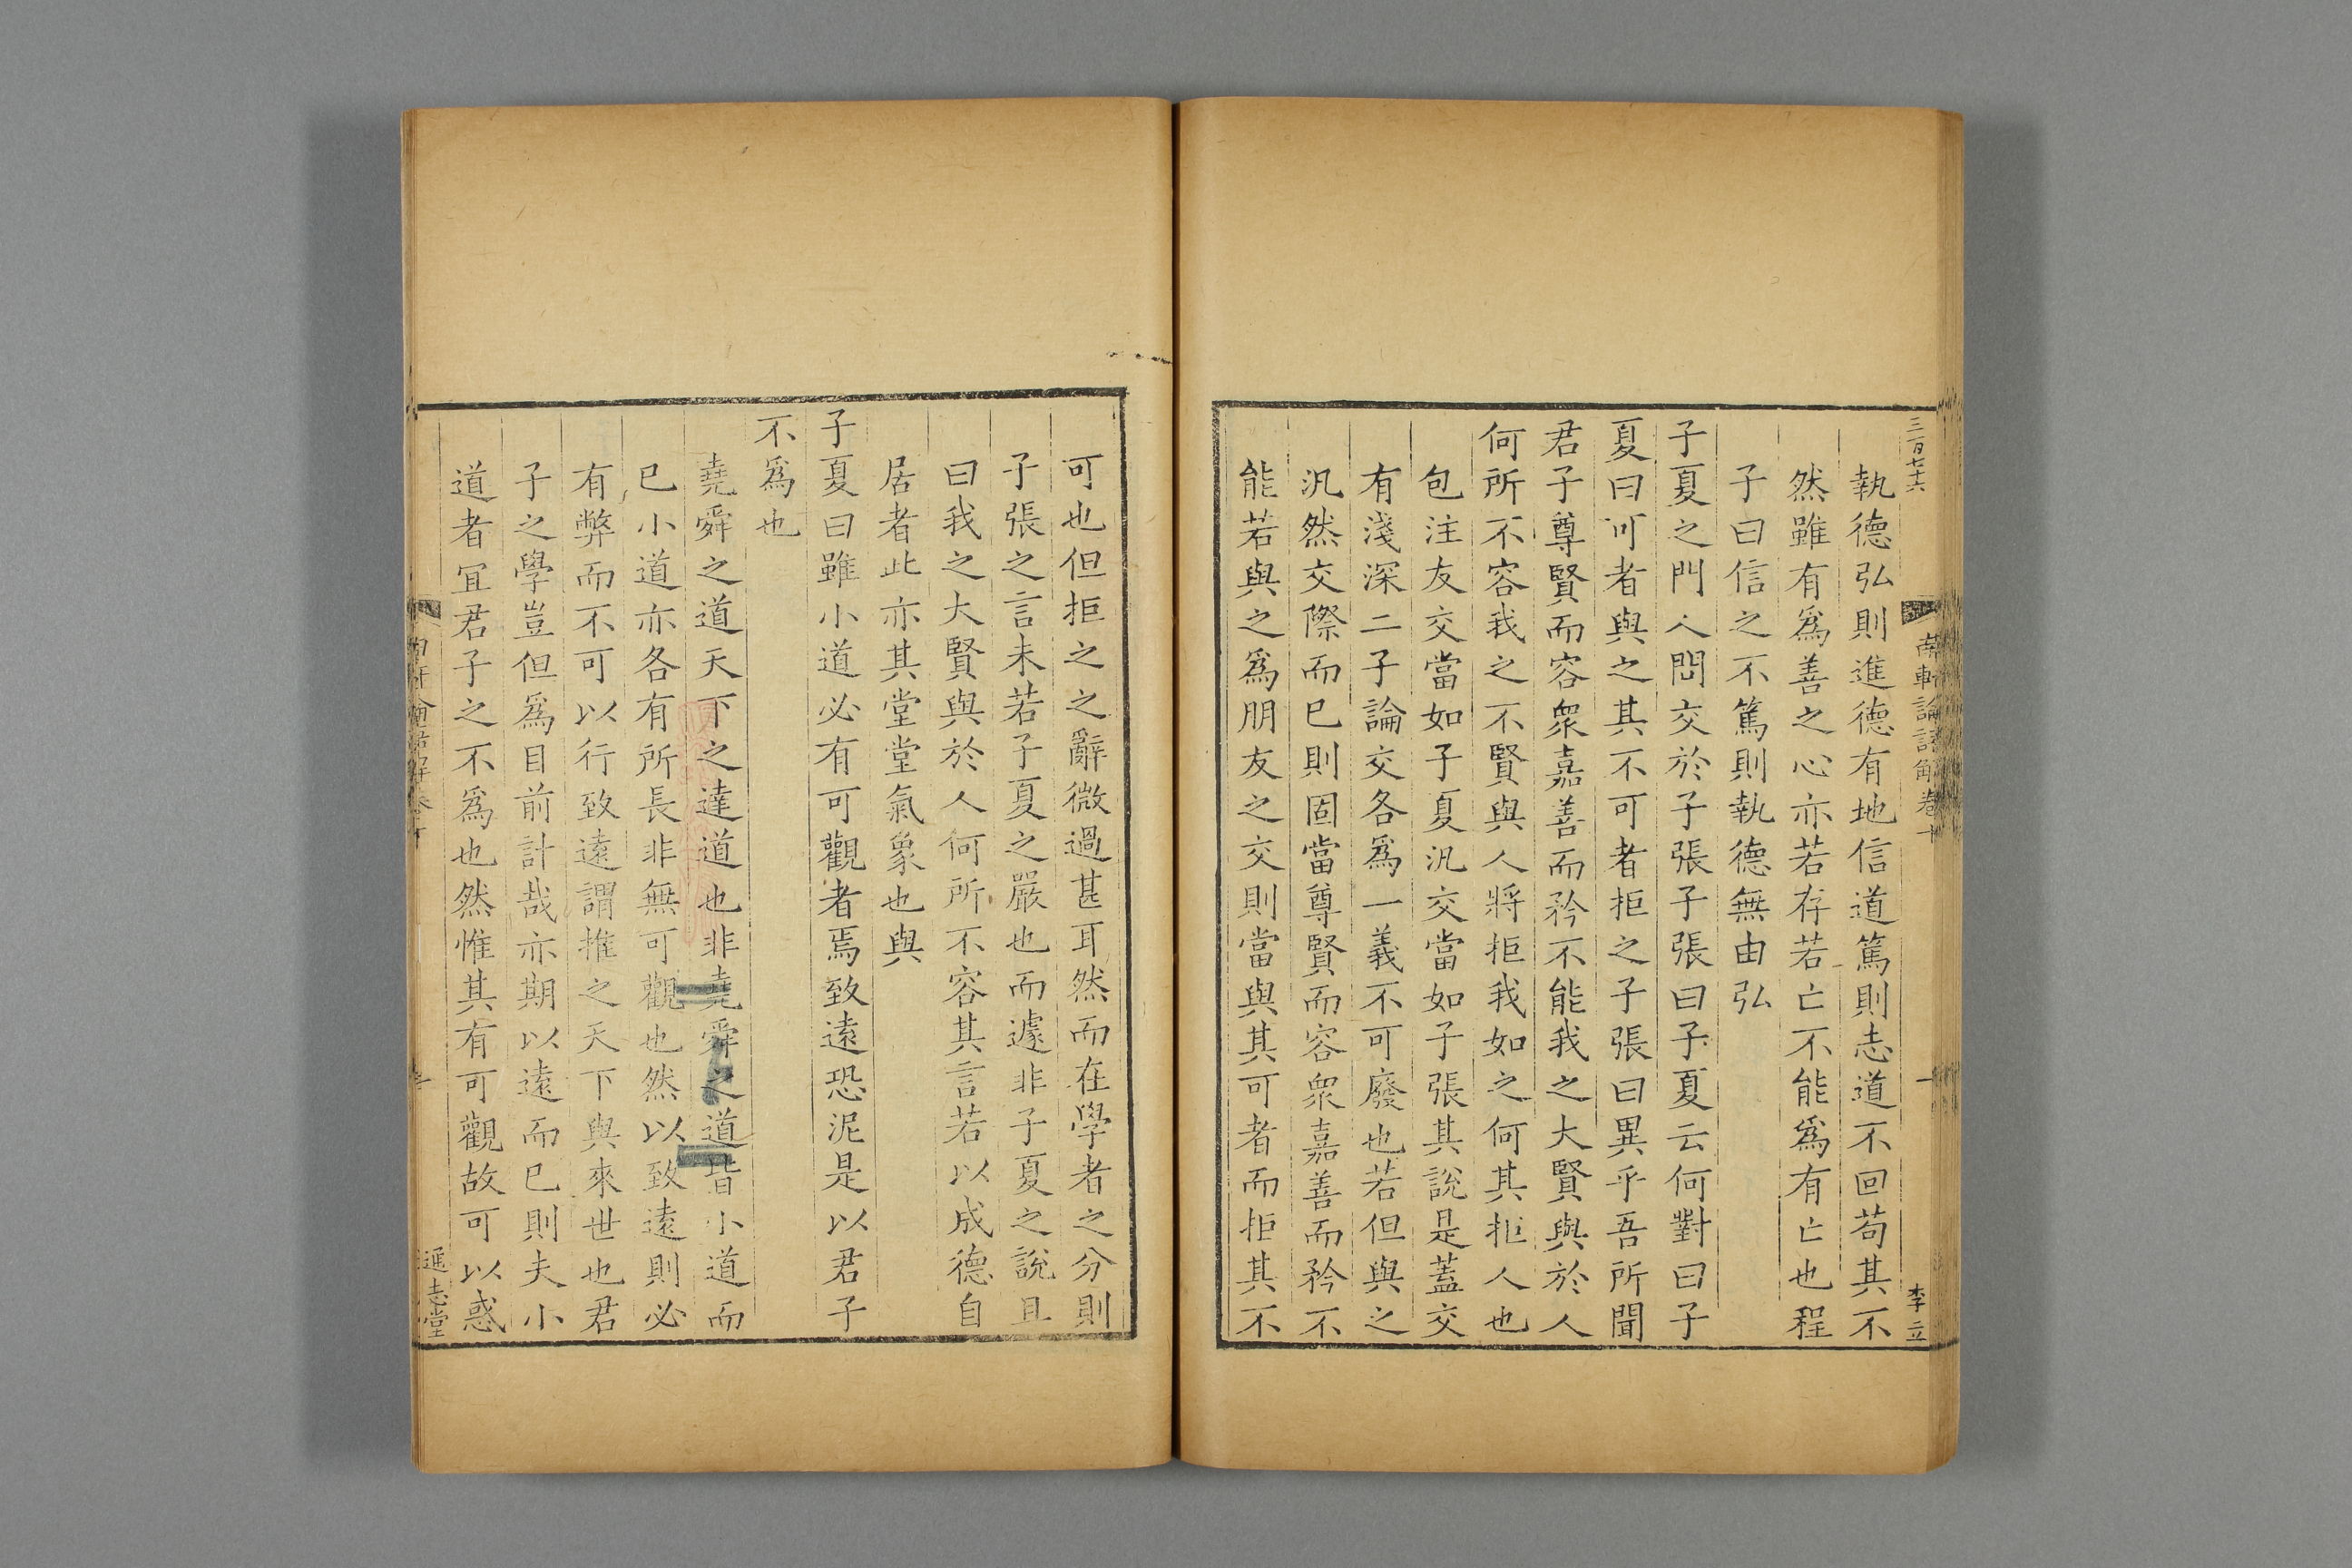 三百七十六
南軒論語解卷十
一
李立
執德弘則進德有地信道篤則志道不回苟其不
然雖有爲善之心亦若存若亡不能爲有亡也程
子曰信之不篤則執德無由弘
子夏之門人問交於子張子張曰子夏云何對曰子
夏曰可者與之其不可者拒之子張曰異乎吾所聞
君子尊賢而容衆嘉善而矜不能我之大賢與於人
何所不容我之不賢與人將拒我如之何其拒人也
包注友交當如子夏汎交當如子張其說是蓋交
有淺深二子論交各爲一義不可廢也若但與之
汎然交際而已則固當尊賢而容衆嘉善而矜不
能若與之爲朋友之交則當與其可者而拒其不
可也但拒之之辭微過甚耳然而在學者之分則
子張之言未若子夏之嚴也而遽非子夏之說且
曰我之大賢與於人何所不容其言若以成德自
居者此亦其堂堂氣象也與
子夏曰雖小道必有可觀者焉致遠恐泥是以君子
不爲也
堯舜之道天下之達道也非堯舜之道皆小道而
已小道亦各有所長非無可觀也然以致遠則必
有弊而不可以行致遠謂推之天下與來世也君
子之學豈但爲目前計哉亦期以遠而已則夫小
道者宜君子之不爲也然惟其有可觀故可以惑
遜志堂